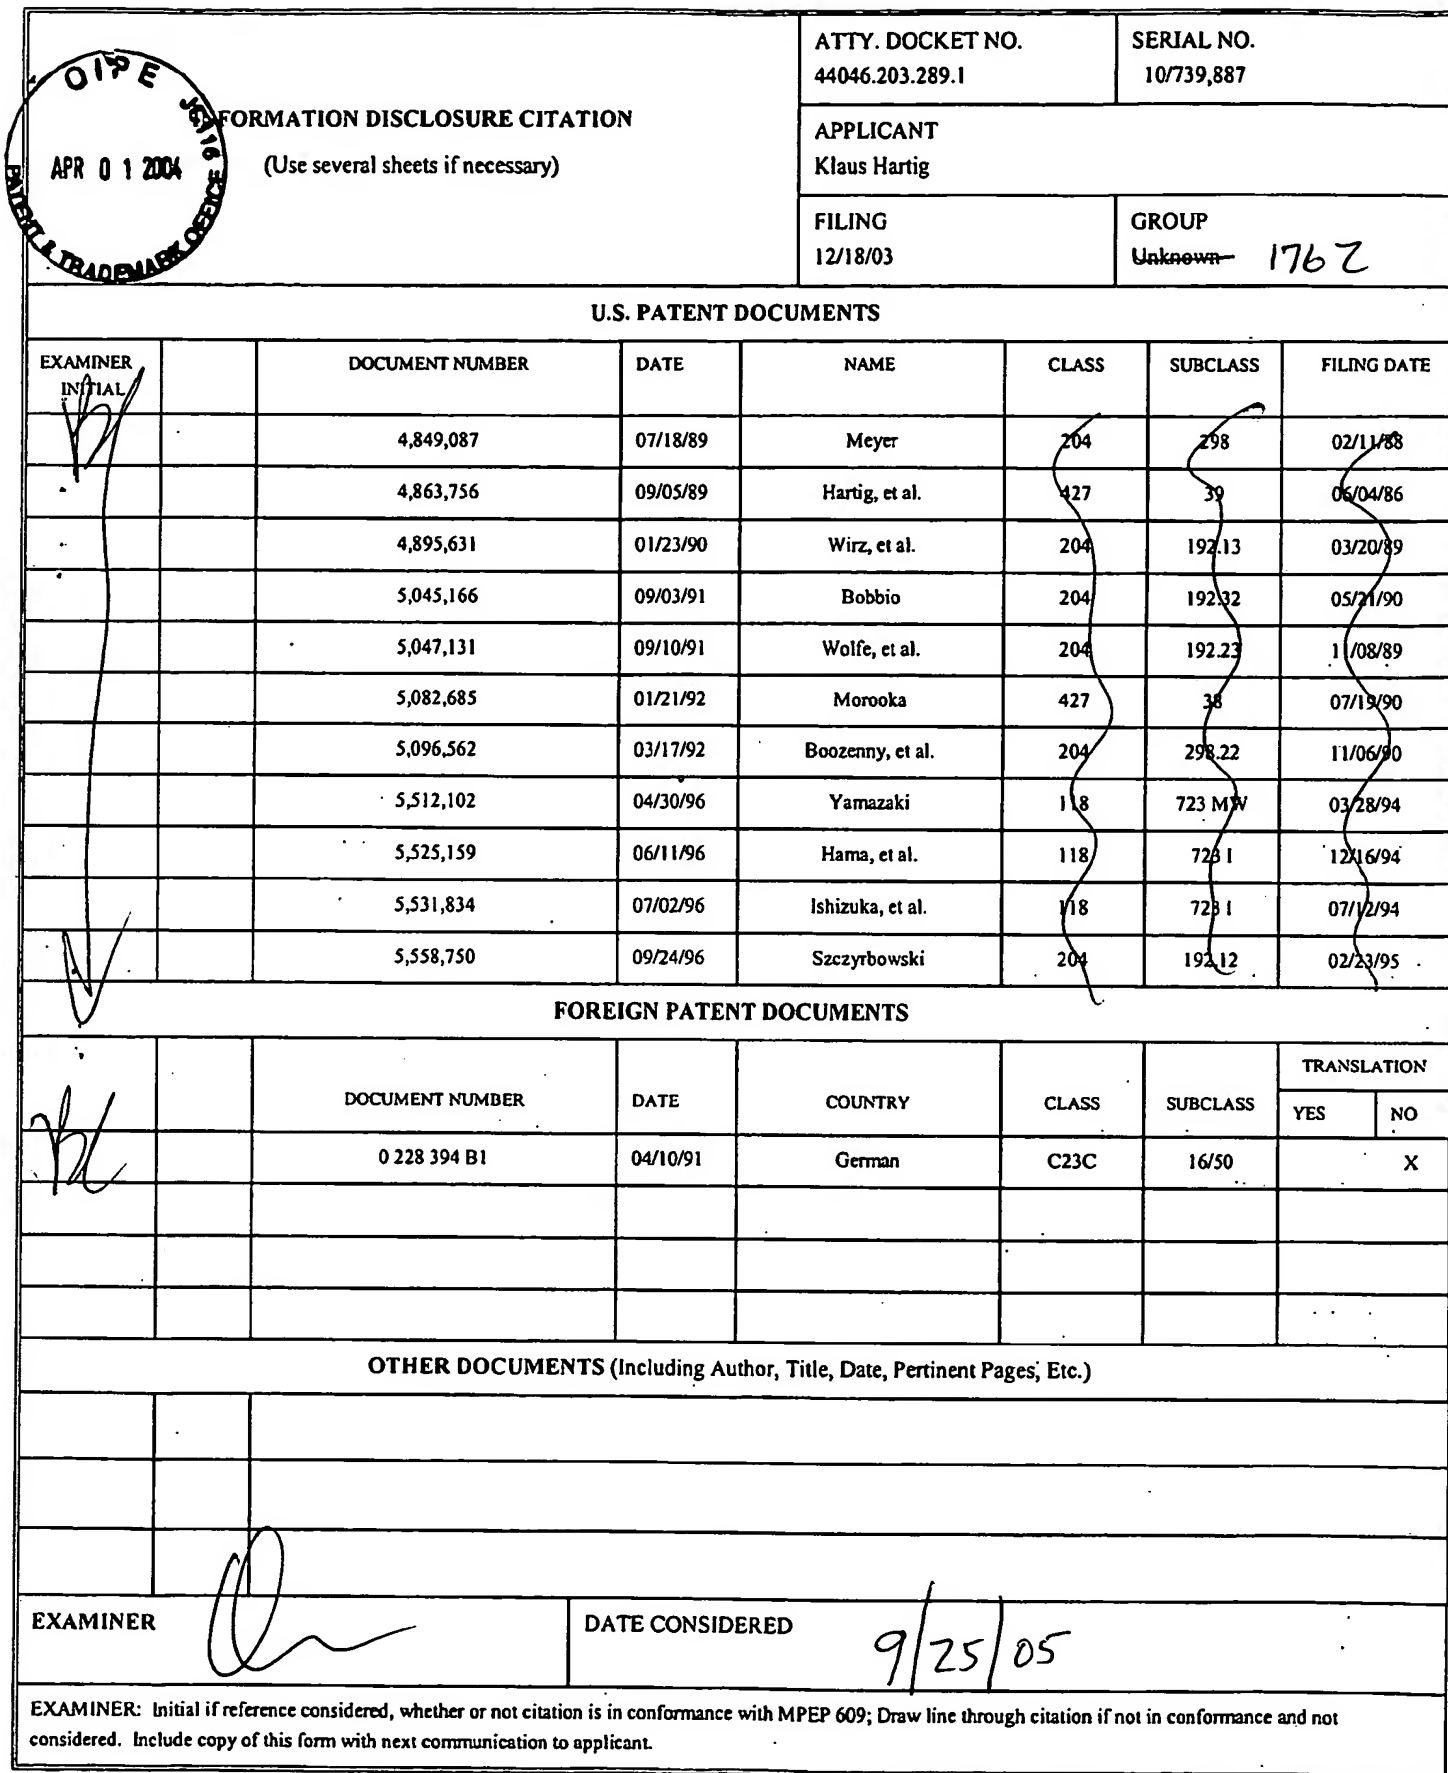 OIPE JC116
APR 0 1 2004
PATENT & TRADEMARK OFFICE
FORMATION DISCLOSURE CITATION
(Use several sheets if necessary)
ATTY. DOCKET NO.
44046.203.289.1
SERIAL NO.
10/739,887
APPLICANT
Klaus Hartig
FILING
12/18/03
GROUP
Unknown 1762
U.S. PATENT DOCUMENTS
EXAMINER INITIAL DOCUMENT NUMBER DATE NAME CLASS SUBCLASS FILING DATE
4,849,087 07/18/89 Meyer 204 298 02/11/88
4,863,756 09/05/89 Hartig, et al. 427 39 06/04/86
4,895,631 01/23/90 Wirz, et al. 204 192.13 03/20/89
5,045,166 09/03/91 Bobbio 204 192.32 05/21/90
5,047,131 09/10/91 Wolfe, et al. 204 192.23 11/08/89
5,082,685 01/21/92 Morooka 427 38 07/19/90
5,096,562 03/17/92 Boozenny, et al. 204 298.22 11/06/90
5,512,102 04/30/96 Yamazaki 118 723 MW 03/28/94
5,525,159 06/11/96 Hama, et al. 118 723 I 12/16/94
5,531,834 07/02/96 Ishizuka, et al. 118 723 I 07/12/94
5,558,750 09/24/96 Szczyrbowski 204 192.12 02/23/95
FOREIGN PATENT DOCUMENTS
DOCUMENT NUMBER DATE COUNTRY CLASS SUBCLASS TRANSLATION
YES NO
0 228 394 B1 04/10/91 German C23C 16/50 X
OTHER DOCUMENTS (Including Author, Title, Date, Pertinent Pages, Etc.)
EXAMINER
DATE CONSIDERED 9/25/05
EXAMINER: Initial if reference considered, whether or not citation is in conformance with MPEP 609; Draw line through citation if not in conformance and not
considered. Include copy of this form with next communication to applicant.